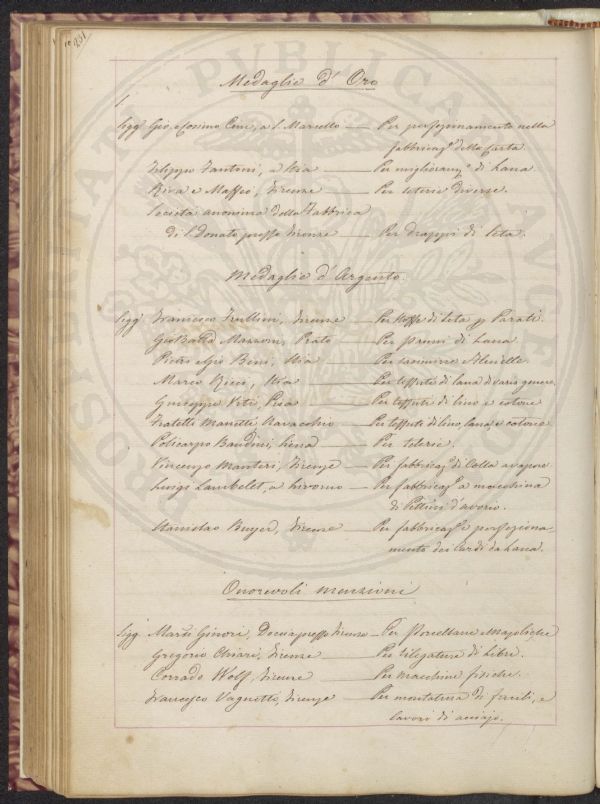 251
Medaglie d'Oro
Sigg.ri Gio. e Cosimo Cini, a S. Marcello — Per perfezionamento nella
fabbricaz.e della Carta.
Filippo Fantoni, a Stia — Per miglioram.o di Lana.
Riva e Maffei, Firenze — Per seterie diverse.
Società anonima della Fabbrica
di S. Donato presso Firenze — Per drappi di seta.
Medaglie d'Argento.
Sigg.ri Francesco Frullini, Firenze — Per Stoffe di Seta p. Parati.
Gio Batta Mazzoni, Prato — Per panni di Lana.
Pietro e Gio Beni, Stia — Per casimirre
Marco Ricci, Stia — Per tessuti di lana di vario genere.
Giuseppe Viti, Pisa — Per tessuti di lino e cotone
Fratelli Manetti Navacchio — Per tessuti di lino, lana, e cotone.
Policarpo Bandini, Siena — Per telerie.
Vincenzo Manteri, Firenze — Per fabbricaz.e di Colla a vapore
Luigi Lambelet, a Livorno — Per fabbricaz.e a macchina
di Pettini d'avorio.
Stanislao Buyer, Firenze — Per fabbricaz.e e perfeziona-
mento dei Cardi da Lana.
Onorevoli menzioni
Sigg.ri March. Ginori, Doccia presso Firenze — Per Porcellane e Majoliche
Gregorio Chiari, Firenze — Per rilegature di Libri.
Corrado Wolf, Firenze — Per macchine fisiche.
Francesco Vagnetti, Firenze — Per montatura di fucili, e
lavori di acciajo.
PUBLICA